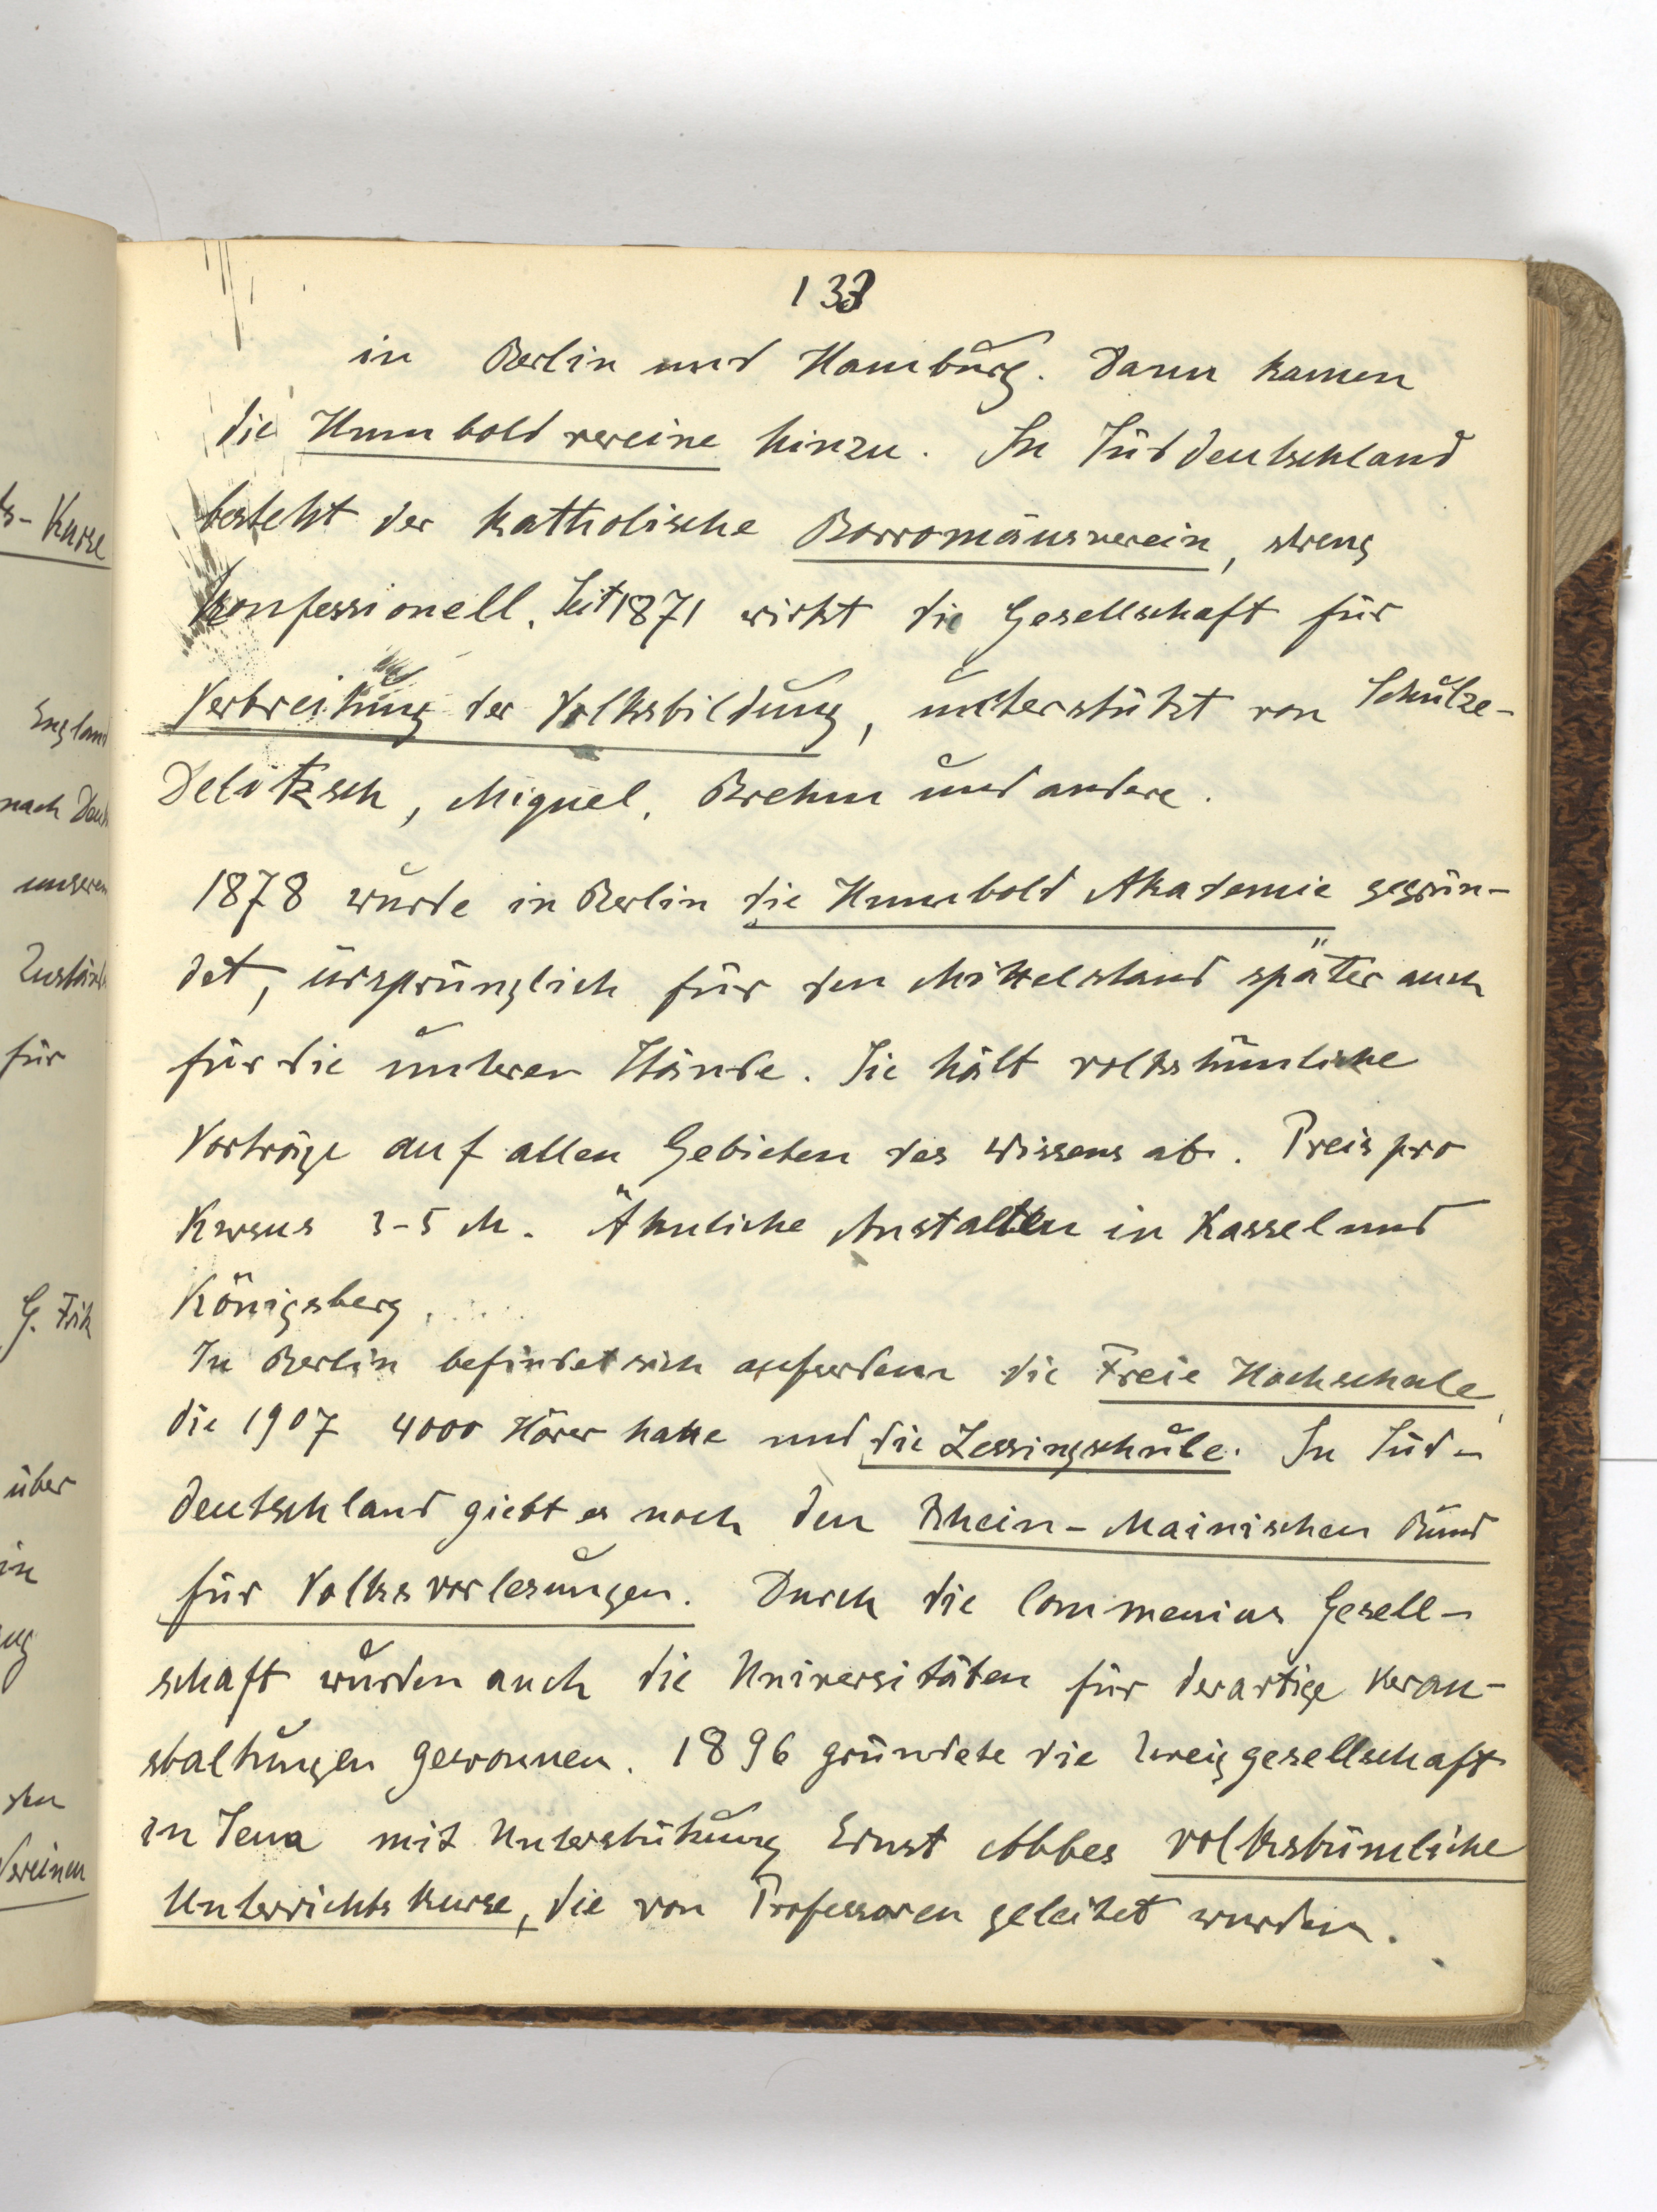 133
in Berlin und Hamburg. Dann kamen
die Humboldvereine hinzu. In Süddeutschland
besteht der katholische Borromäusverein, streng
konfessionell. Seit 1871 wirkt die Gesellschaft für
Verbreitung der Volksbildung, unterstützt von Schulze-
Delitzsch, Miquel, Brehm und andere.
1878 wurde in Berlin die Humbold Akademie gegrün-
det, ursprünglich für den Mittelstand später auch
für die unteren Stände. Sie hält volkstümliche
Vorträge auf allen Gebieten des Wissens ab. Preis pro
Kursus 3-5 M. Ähnliche Anstalten in Kassel und
Königsberg.
In Berlin befindet sich außerdem die Freie Hochschule,
die 1907 4000 Hörer hatte und die Lessingschule. In Süd-
deutschland giebt es noch den Rhein-Mainischen Bund
für Volksvorlesungen. Durch die Commenius Gesell-
schaft wurden auch die Universitäten für derartige Veran-
staltungen gewonnen. 1896 gründete die Zweiggesellschaft
in Jena mit Unterstützung Ernst Abbes volkstümliche
Unterrichtskurse, die von Professoren geleitet wurden.
ts-Kurse
England
nach Deut
unseren
Zuständ
für
G. Fritz
über
in
ug
den
Vereinen